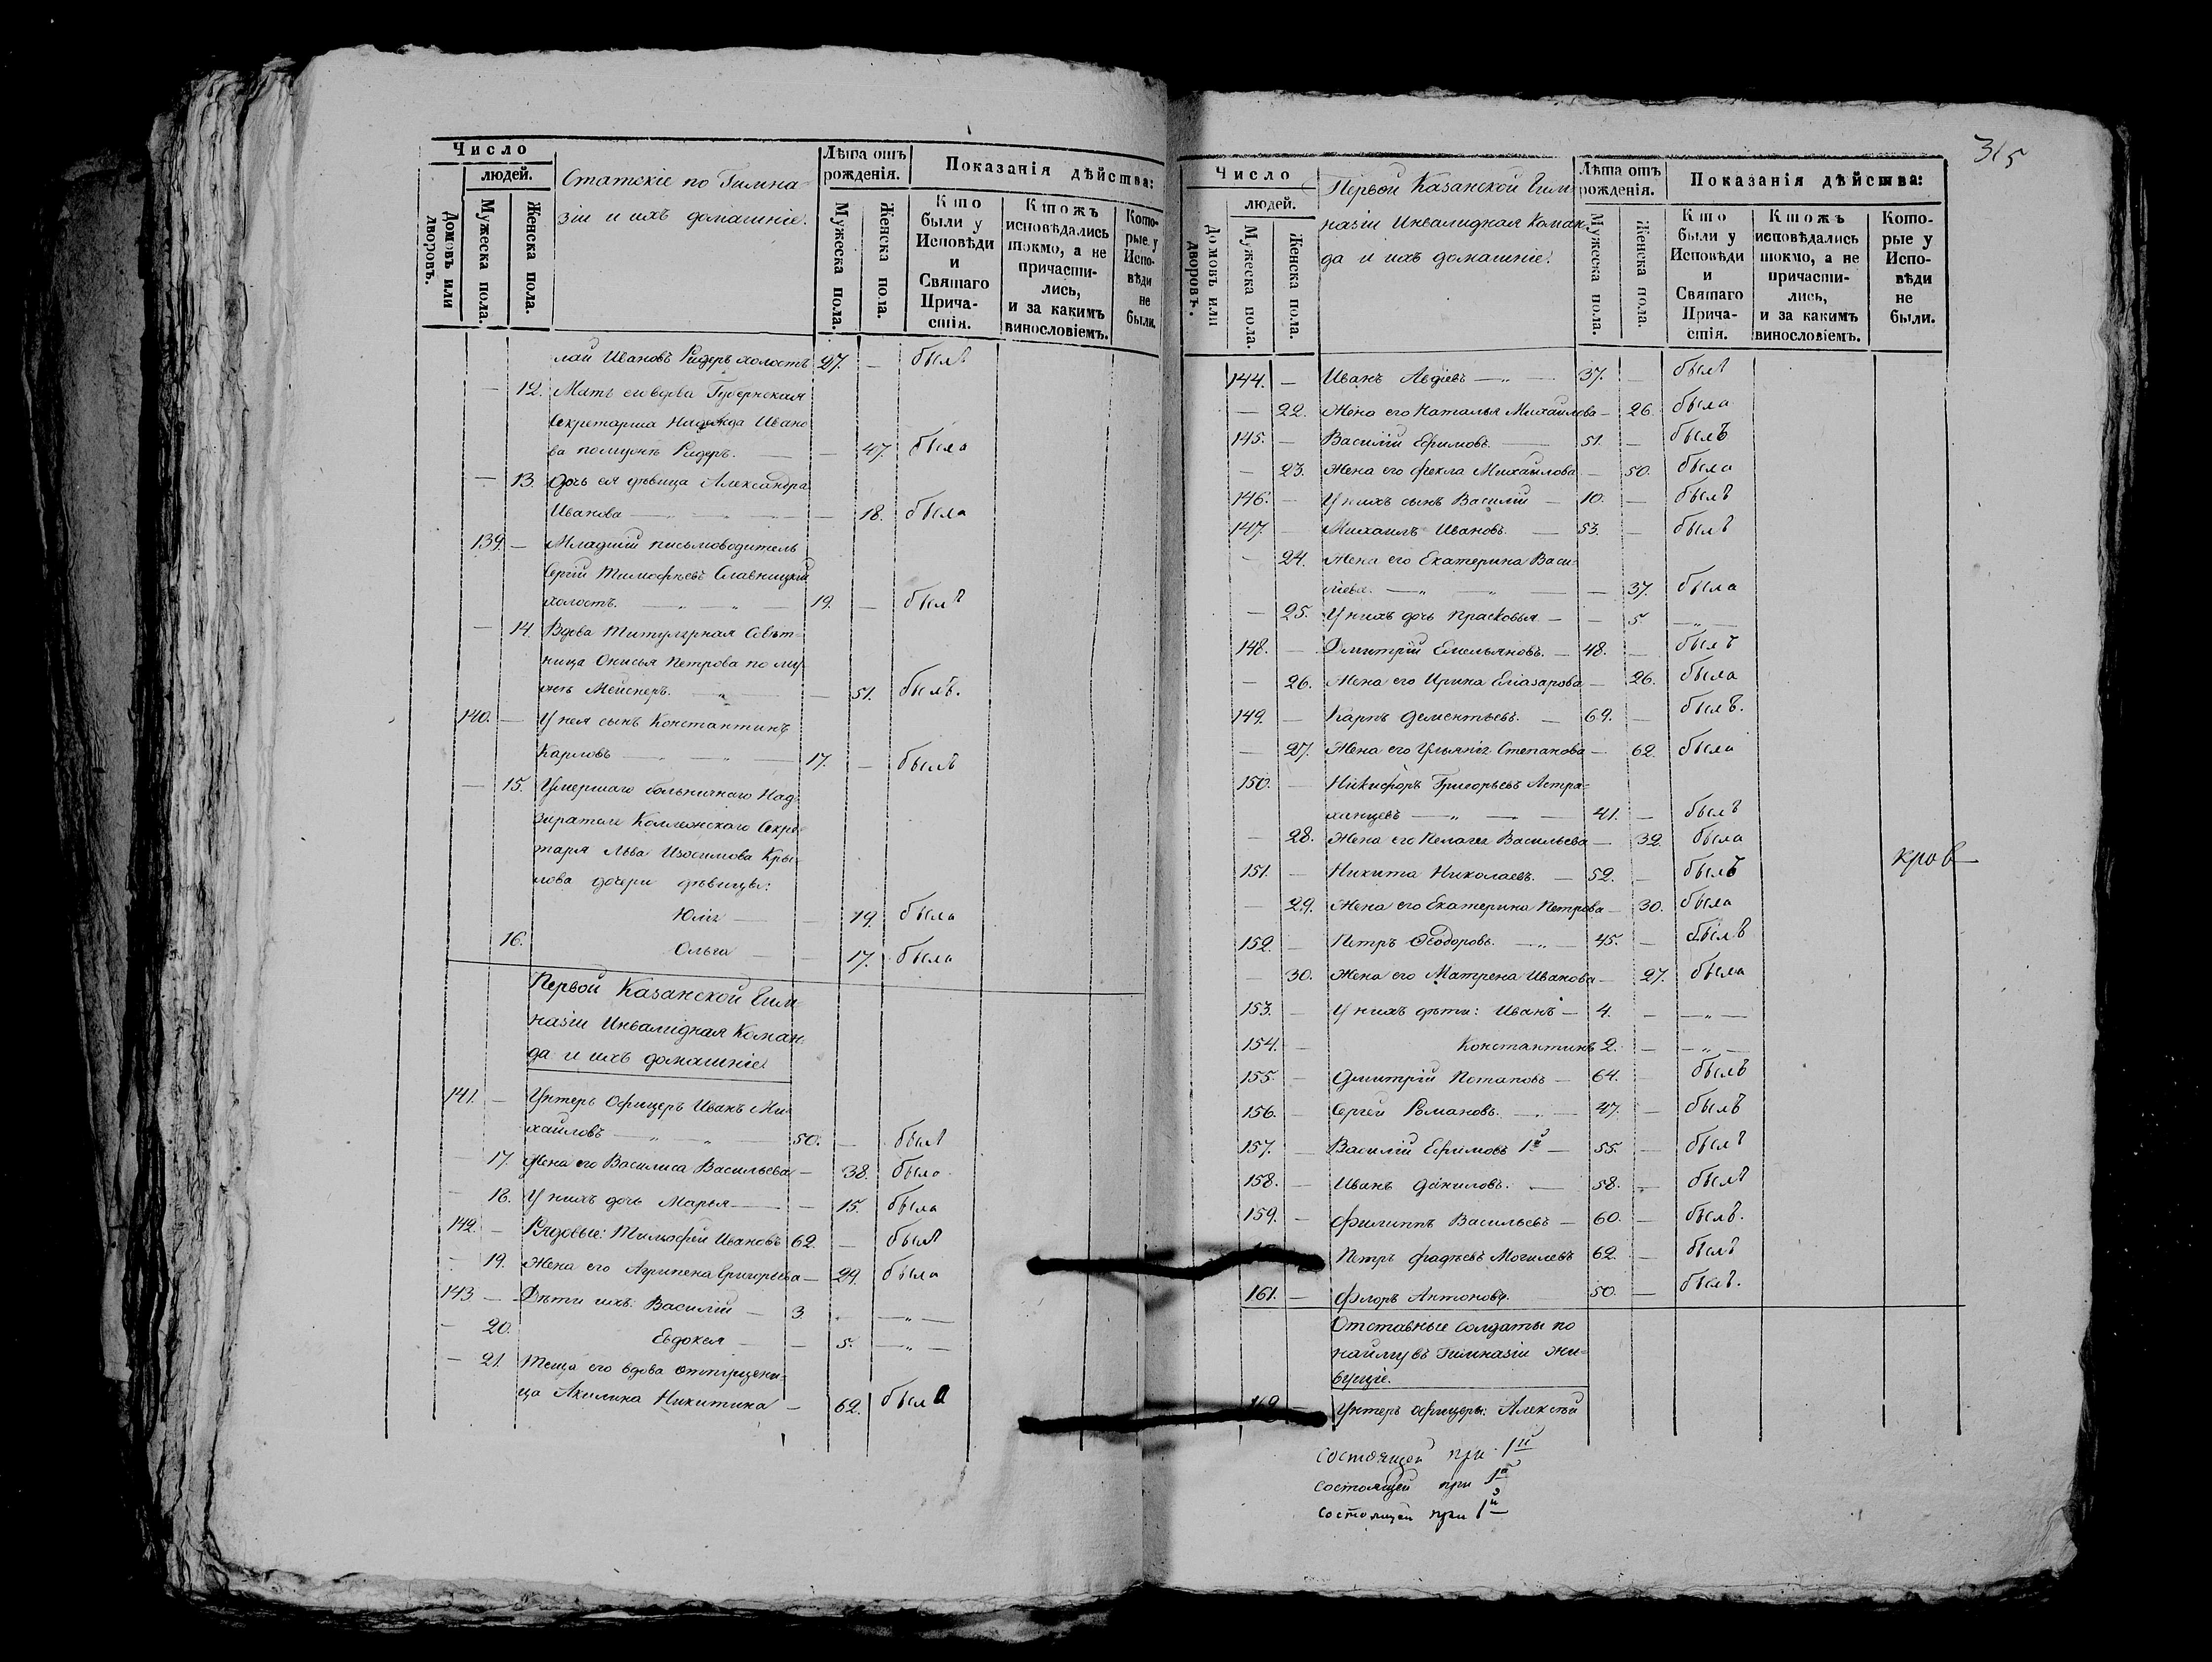 Число
людей.
Домовъ или дворовъ.
Мужеска пола.
Женска пола.
Статскіе по Гимна-
зіи и ихъ домашніе.
Лѣта отъ рожденія.
Мужеска пола.
Женска пола.
Показанія дѣйства:
Кто были у Исповѣди и Святаго Прича-стія.
Ктожъ исповѣдались токмо, а не причасти-лись, и за какимъ винословіемъ.
Кото-рые у Испо-вѣди не были.
лай Ивановъ Ридеръ холостъ 27. — былъ
— 12. Мать его вдова Губернская
Секретарша Надежда Ивано
ва помужѣ Ридеръ. — — 47. была
— 13. Дочь ея дѣвица Александра
Иванова — — 18. была
139. — Младшій письмоводитель
Сергій Тимофѣевъ Славницкій
холостъ. — 19. — былъ
— 14. Вдова Титулярная Совѣт-
ница Онисья Петрова по му-
жѣ Мейснеръ. — 51. былъ.
140. — У нея сынъ Константинъ
Карловъ — 17. — былъ
— 15. Умершаго больничнаго Над-
зирателя Коллежскаго Секре-
таря Льва Изосимова Кры-
лова дочери дѣвицы:
Юлія — — 19. была
16. Ольга — — 17. была
Первой Казанской Гим-
назіи Инвалидная Коман-
да и ихъ домашніе.
141. — Унтеръ Офицеръ Иванъ Ми-
хайловъ — 50. — былъ
— 17. Жена его Василиса Васильева — 38. была
— 18. У нихъ дочь Марья — — 15. была
142. — Рядовые: Тимофей Ивановъ 62. — былъ
— 19. Жена его Агрипена Григорьева — 29. была
143 — Дѣти ихъ: Василій — 3. — „ —
— 20. Евдокея — — 5. — „ —
— 21. Теща его вдова отпущени-
ца Акилина Никитина — 62. была
315
Число
людей.
Домовъ или дворовъ.
Мужеска пола.
Женска пола.
Первой Казанской Гим-
назіи Инвалидная Коман-
да и ихъ домашніе.
Лѣта отъ рожденія.
Мужеска пола.
Женска пола.
Показанія дѣйства:
Кто были у Исповѣди и Святаго Прича-стія.
Ктожъ исповѣдались токмо, а не причасти-лись, и за какимъ винословіемъ.
Кото-рые у Испо-вѣди не были.
144. — Иванъ Авдіевъ — „ — 37. — былъ
— 22. Жена его Наталья Михайлова — 26. была
145. — Василій Ефимовъ. — 51. — былъ
— 23. Жена его Фекла Михайлова — 50. была
146. — У нихъ сынъ Василій — 10. — былъ
147. — Михаилъ Ивановъ. — 53. — былъ
— 24. Жена его Екатерина Васи-
лева. — „ — „ — — 37. была
— 25. У нихъ дочь Прасковья. — — 5 — „ —
148. — Дмитрій Емельяновъ. — 48. — былъ
— 26. Жена его Ирина Еліазарова — 26. была
149. — Карпъ Дементьевъ. — 69. — былъ.
— 27. Жена его Ульянія Степанова — 62. была
150. — Никифоръ Григорьевъ Астра-
ханцевъ — „ — — 41. — былъ
— 28. Жена его Пелагея Васильева — 32. была
151. — Никита Николаевъ. — 52. — былъ
кров
— 29. Жена его Екатерина Петрова — 30. была
152. — Петръ Ѳеодоровъ. — „ — 45. — былъ
— 30. Жена его Матрена Иванова — 27. была
153. — У нихъ дѣти: Иванъ — 4. — — „ —
154. — Константинъ 2. — — „ —
155. — Дмитрій Потаповъ — 64. — былъ
156. — Сергей Романовъ. — „ — 47. — былъ
157. — Василій Ефимовъ 1й — 55. — былъ
158. — Иванъ Даниловъ. — 58. — былъ
159. — Филиппъ Васильевъ — 60. — былъ.
Петръ Фадѣевъ Могилевъ 62. — былъ
161. — Флоръ Антоновъ. 50. — былъ.
Отставные солдаты по
найму въ Гимназіи жи-
вущіе.
162 Унтеръ офицеры: Алексѣй
состоящей при 1й
состоящей при 1й
состоящей при 1й